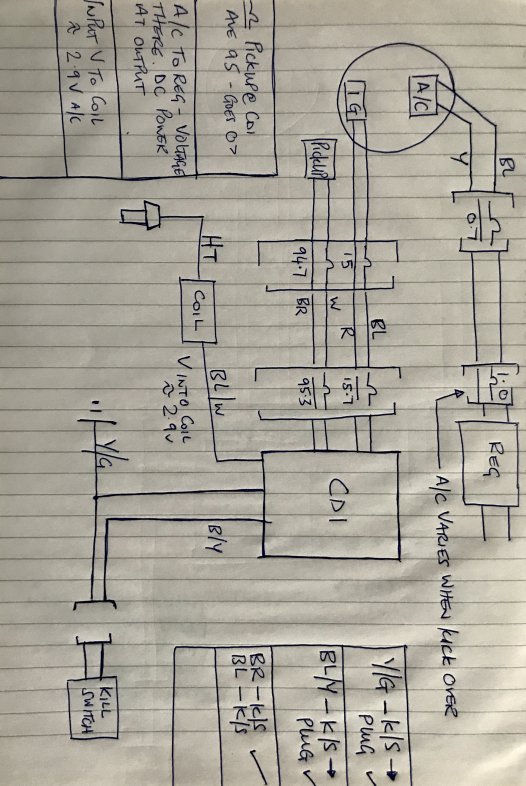 A/C
BL
Y
Ω
0.7
Ω
1.0
REG
A/C VARIES WHEN KICK OVER
IG
PICKUP
Ω
15
Ω
94.7
BL
R
W
BR
Ω
15.7
Ω
95.3
CDI
Y/G - K/S →
PLUG ✓
BL/Y - K/S →
PLUG ✓
BR - K/S
BL - K/S ✓
Ω PICKUP @ CDI
AVE 95 - GOES 0>
A/C TO REG - VOLTAGE
THERE DC POWER
AT OUTPUT
INPUT V TO COIL
≈ 2.9V A/C
HT
COIL
BL/W
V INTO COIL
≈ 2.9V
B/Y
Y/G
KILL
SWITCH